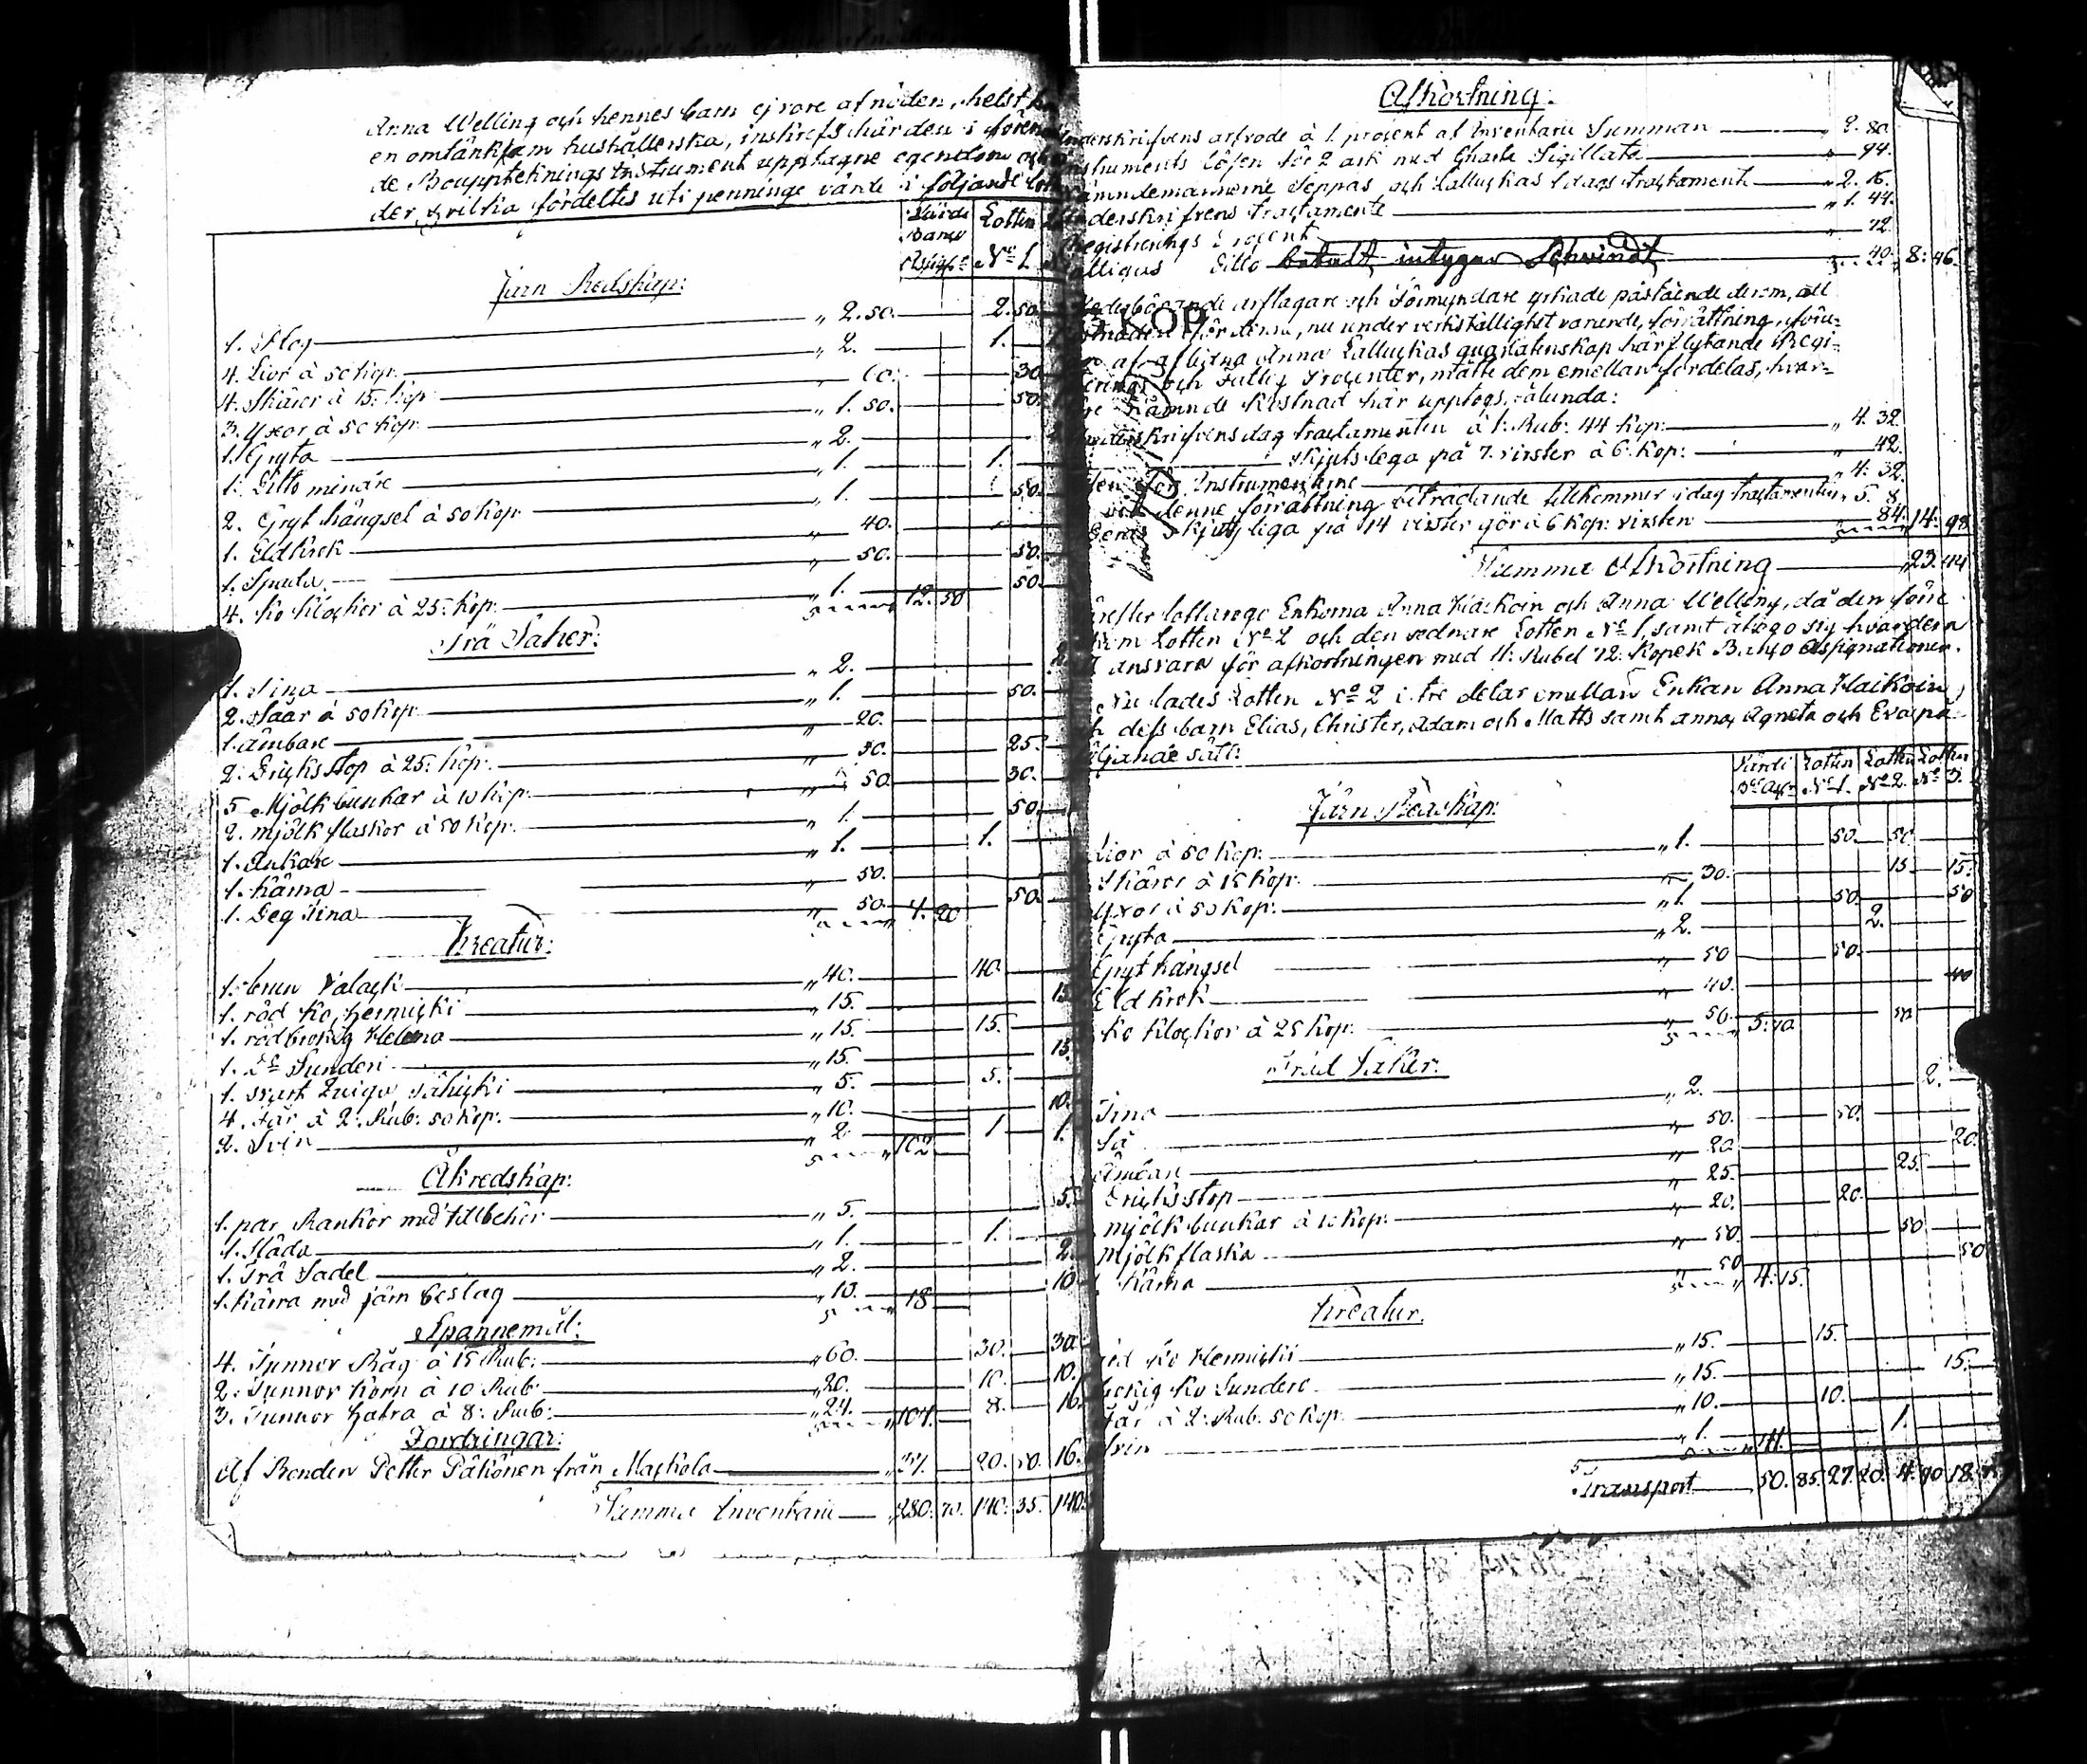 Anna Welling och hennes barn ej vore af nöden, helst
en omtänksam hushållerska, inskrefs härden i
de Bouppteknings Instrument upptagne egendom och
der, hvilka fördeltes uti penninge värde i följande
Värde Banco Assign: Lotten N:o 1.
Järn Redskap:
1. Plog „ 2. 50. 2. 50.
4. Lior à 50 Kop: „ 2. 1.
4. Skäror à 15. Kop: „ 60. 30
3. Yxor à 50 Kop: „ 1. 50. 50
1. Gryta „ 2.
1. Ditto mindre „ 1. 1.
2. Gryt hängsel à 50 Kop: „ 1. 50.
1. Eldkrok „ 40.
1. Spada „ 50. 50.
4. Ko Klockor à 25. Kop: „ 1. 12. 50 50.
Trä Saker:
1. Tina „ 2. 2.
2. Såar à 50 Kop: „ 1. 50.
1. Ämbare „ 20.
2. Dricksstop à 25. Kop: „ 50. 25.
5 Mjölk bunkar à 10 Kop: „ 50. 30.
2. mjölk flaskor à 50 Kop: „ 1. 50.
1. Ankare „ 1. 1.
1. Kärna „ 50.
1. Deg Tina „ 50. 7. 20 50.
Kreatur:
1. brun Valack „ 40. 40.
1. röd Ko, Hermicki „ 15. 15.
1. rödbrokig Helena „ 15. 15.
1. D:o Sunderi „ 15. 15.
1. svart Qviga „ 5. 5.
4. Får à 2: Rub: 50 Kop: „ 10. 10.
2. Svin „ 2. 102 1 1.
Åkredskap:
1. par Rankor med tillbehör „ 5. 5.
1. Släda „ 1. 1.
1. Trä Sadel „ 2. 2.
1. Kärra med järn beslag „ 10. 18 10
Spannemål:
4. Tunnor Råg à 15 Rub: „ 60. 30. 30.
2. Tunnor Korn à 10 Rub: „ 20. 10. 10.
3. Tunnor hafra à 8: Rub: „ 24. 104. 8. 16.
Fordringar:
Af Bonden Petter Päkönen från Mackola „ 37. 20. 50. 16.
Summa Inventarii „ 280. 70. 140. 35. 140.
Afkortning:
underskrifvens arfvode à 1 procent af Inventarii Summan „ 2. 80
Instruments lösen för 2 ark med Charta Sigillata „ 94.
Nämndemännerne Seppas och Lalluckas 1 dags tractament „ 2. 16.
Underskrifvens Tractamente „ 1. 44.
Registrerings Procent „ 72.
Fattigas Ditto betalt intygar Schvindt 40. 8: 46.
Vederbörande arftagare och Förmyndare yrkade påstående derom, att
för denna, nu under verkställighet varande, förrättning,
af aflidna Anna Lalluckas qvarlatenskap härflytande Regi-
strerings och Fattig Procenter, måtte dem emellan fördelas, hvar-
nämnde Kostnad här upptogs, sålunda:
Underskrifvens dag tractamenten à 1: Rub: 44 Kop: „ 4. 32.
skjuts lega på 7. virster à 6. Kop: „ 42.
för Instrumenterne „ 4. 32.
vid denne förrättning biträdande tillkommer i dag tractamenten „ 5. 8.
skjuts lega på 14 virster gör à 6 Kop: virsten 84. 14. 98
Summa Afkortning „ 23. 44
härefter lottarego Enkorna Anna Haikoin och Anna Welling, då den förre
Lotten N:o 2 och den sednare Lotten N:o 1, samt åtogo sig hvardera
ansvara för afkortningen med 11: Rubel 72. Kopek Banco Assignationer.
Nu lades Lotten N:o 2 i tre delar emellan Enkan Anna Haikoin
och dess barn Elias, Christer, Adam och Matts samt Anna, Agneta och Eva på
följande sätt:
Värde B:o Ass:n Lotten N:o 1. Lotten N:o 2. Lotten N:o 3.
Järn Redskap:
Lior à 50 Kop: „ 1. 50. 50.
Skäror à 15 Kop: „ 30. 15 15.
Yxor à 50 Kop: „ 1. 50. 50
Gryta „ 2. 2.
Gryt hängsel „ 50 50.
Eld krok „ 40. 40
Ko Klockor à 25 Kop: „ 50. 5. 70
Träd Saker.
Tina „ 2. 2.
Så „ 50. 50.
Ämbare „ 20 20.
Dricksstop „ 25. 25.
mjölk bunkar à 10 Kop: „ 20. 20.
Mjölkflaska „ 50. 50
Kärna „ 50 4. 15. 50
Kreatur.
röd Ko Hermicki „ 15. 15.
brokig Ko Sundere „ 15. 15.
Får à 2: Rub: 50 Kop: „ 10. 10.
Svin „ 1. 41. 1.
Transport 50. 85. 27. 20. 4. 90 18. 75